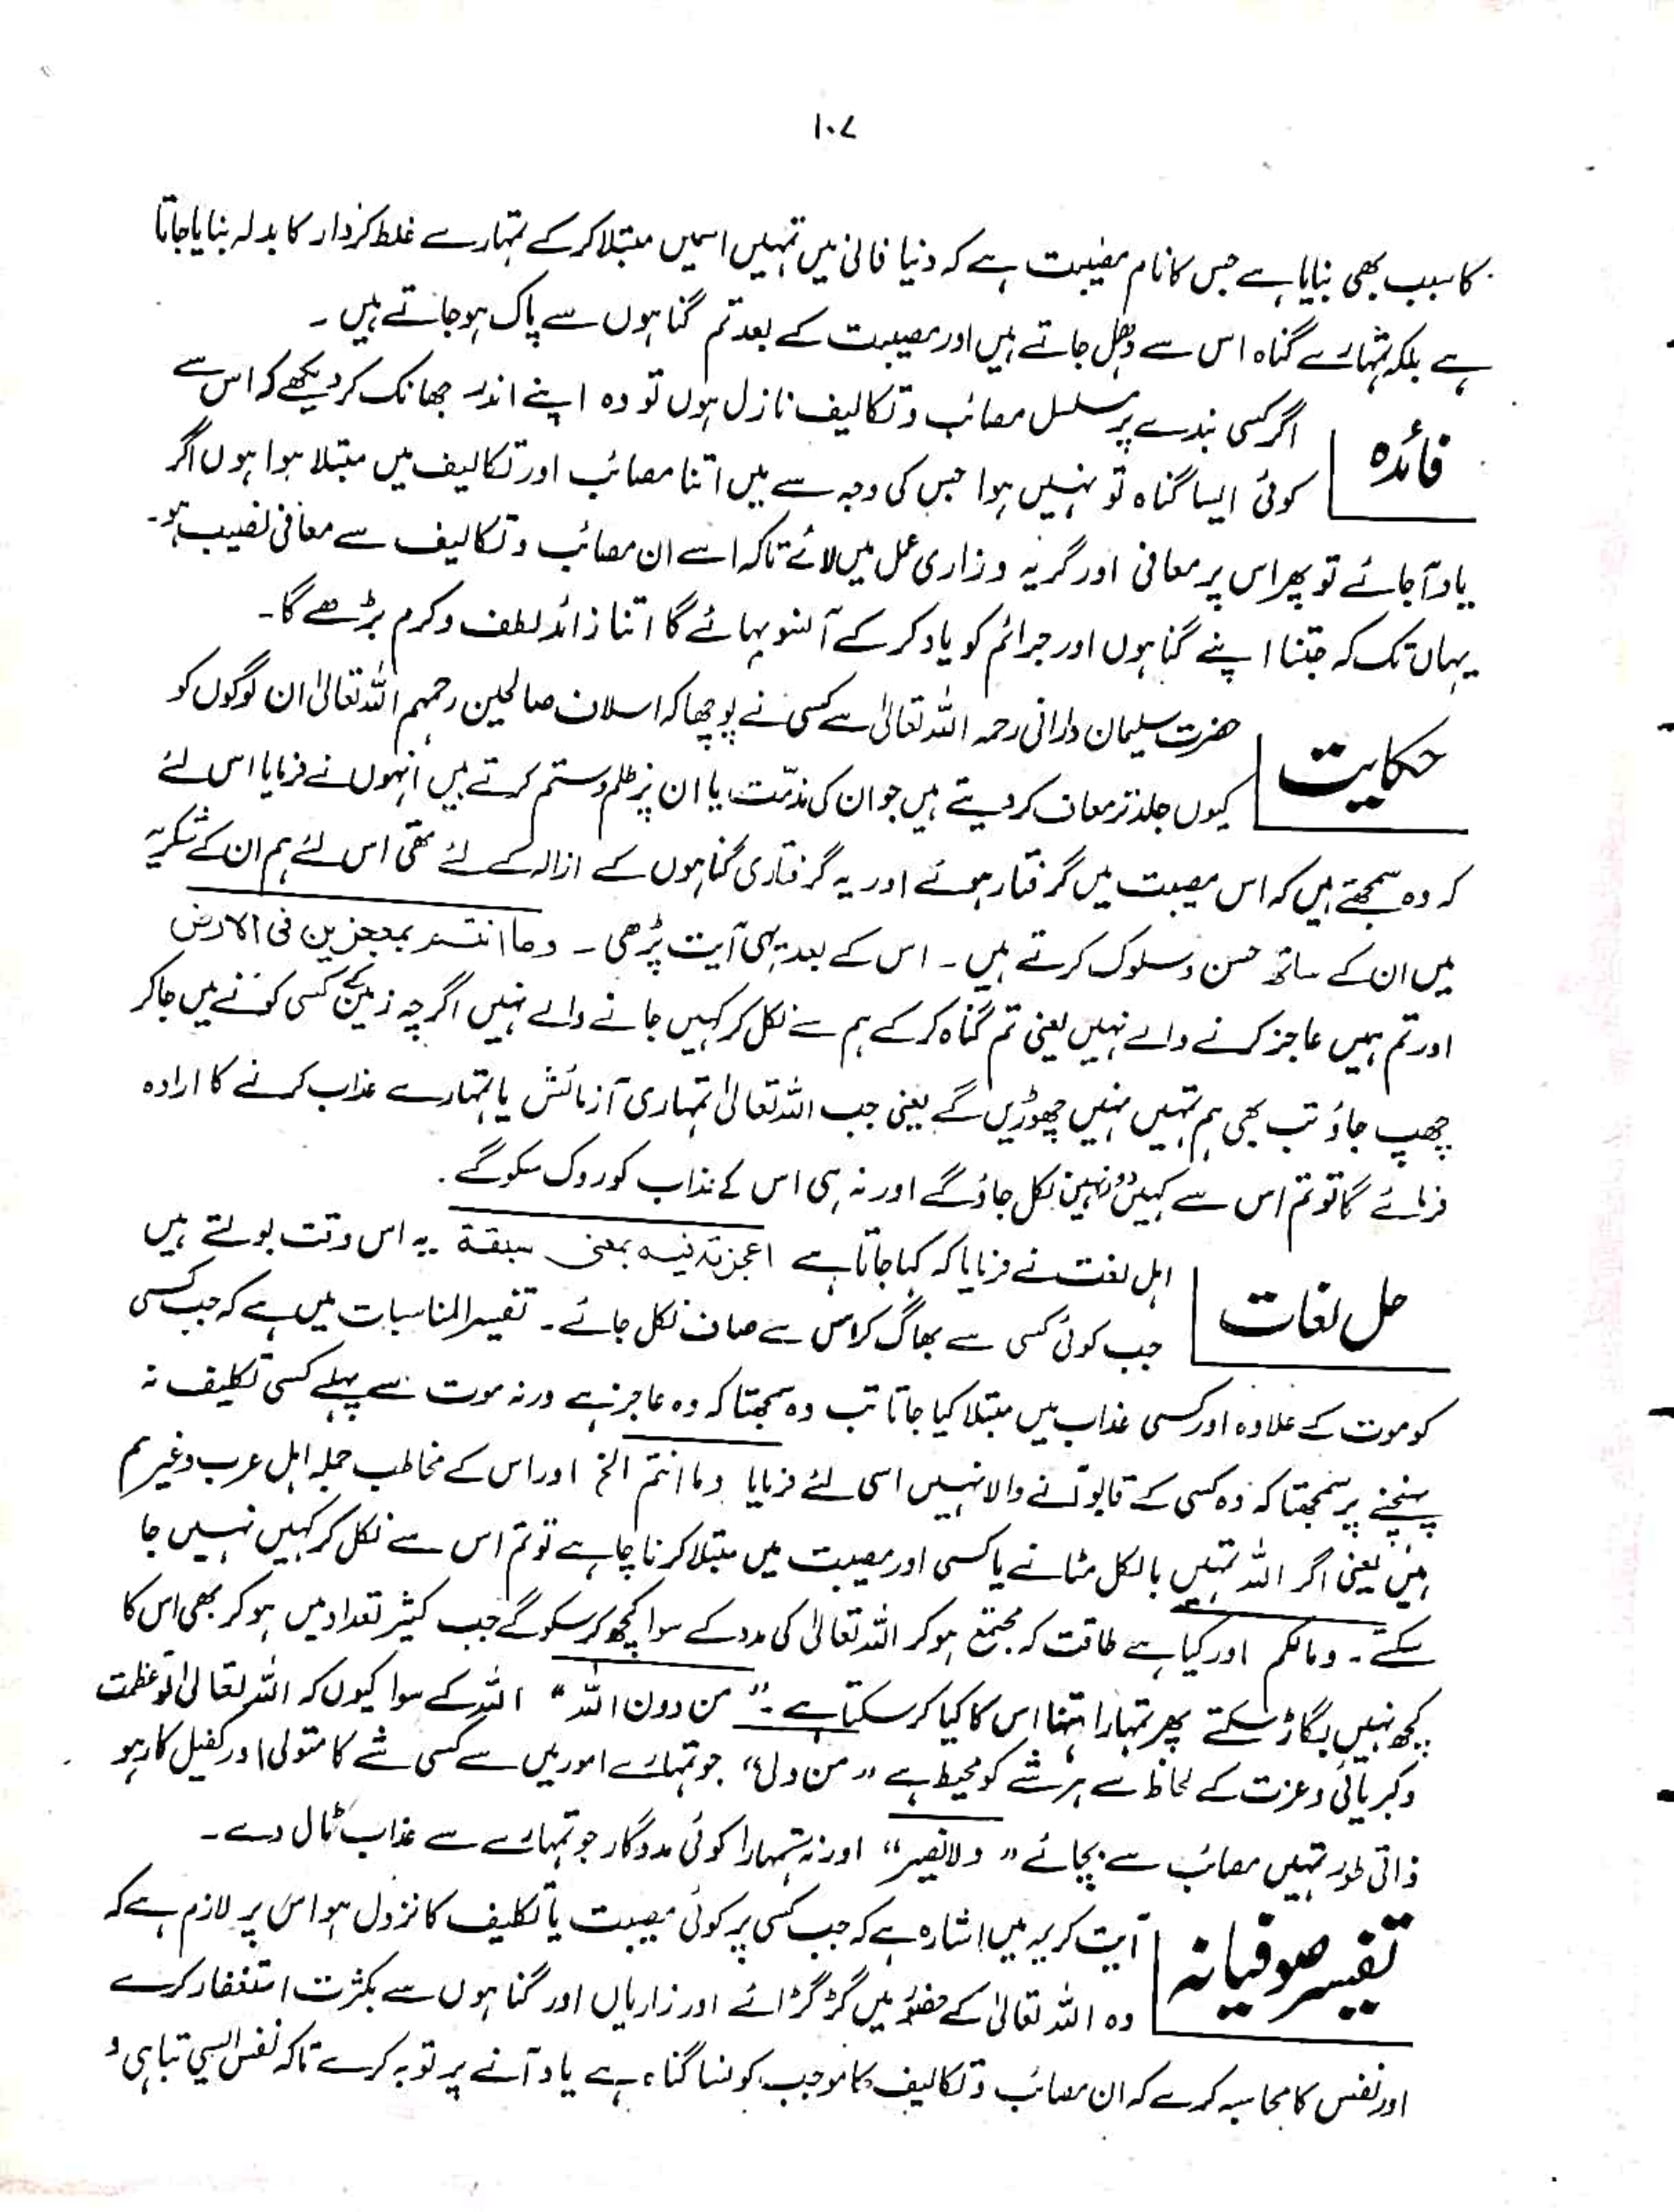 ۱۰۷
کا سبب بھی بنایا ہے جس کا نام مصیبت ہے کہ دنیا فانی میں تمہیں اسمیں مبتلا کر کے تمہارے غلط کردار کا بدلہ بنایا جاتا
ہے بلکہ تمہارے گناہ اس سے دھل جاتے ہیں اور مصیبت کے بعد تم گناہوں سے پاک ہو جاتے ہیں ۔
فائدہ
اگر کسی بندے پر مسلسل مصائب و تکالیف نازل ہوں تو وہ اپنے اندر جھانک کر دیکھے کہ اس سے
کوئی ایسا گناہ تو نہیں ہوا جس کی وجہ سے میں اتنا مصائب اور تکالیف میں مبتلا ہوا ہوں اگر
یاد آ جائے تو پھر اس پر معافی اور گریہ و زاری عمل میں لائے تاکہ اسے ان مصائب و تکالیف سے معافی نصیب ہو۔
یہاں تک کہ جتنا اپنے گناہوں اور جرائم کو یاد کر کے آنسو بہائے گا اتنا زائد لطف و کرم بڑھے گا۔
حکایت
حضرت سلیمان دارانی رحمہ اللہ تعالیٰ سے کسی نے پوچھا کہ اسلاف صالحین رحمہم اللہ تعالیٰ ان لوگوں کو
کیوں جلد تر معاف کر دیتے ہیں جو ان کی مذمّت یا ان پر ظلم و ستم کرتے ہیں اُنہوں نے فرمایا اس لئے
کہ وہ سمجھتے ہیں کہ اس مصیبت میں گرفتار ہوئے اور یہ گرفتاری گناہوں کے ازالہ کے لئے تھی اس لئے ہم ان کے شکریہ
میں ان کے ساتھ حسن و سلوک کرتے ہیں ۔ اس کے بعد یہی آیت پڑھی ۔ وما انتم بمعجزین فی الارض
اور تم ہمیں عاجز کرنے والے نہیں یعنی تم گناہ کر کے ہم سے نکل کر کہیں جانے والے نہیں اگرچہ زمین کے کسی کونے میں جا کر
چھپ جاؤ تب بھی ہم تمہیں نہیں چھوڑیں گے یعنی جب اللہ تعالیٰ تمہاری آزمائش یا تمہارے عذاب کرنے کا ارادہ
فرمائے گا تو تم اس سے کہیں نہیں نکل جاؤ گے اور نہ ہی اس کے عذاب کو روک سکو گے ۔
حل لغات
اہل لغت نے فرمایا کہ کہا جاتا ہے اعجزتہ فیہ بمعنی سبقتہ یہ اس وقت بولتے ہیں
جب کوئی کسی سے بھاگ کر اس سے صاف نکل جائے ۔ تفسیر المناسبات میں ہے کہ جب کسی
کو موت کے علاوہ اور کسی عذاب میں مبتلا کیا جاتا تب وہ سمجھتا کہ وہ عاجز ہے ورنہ موت سے پہلے کسی تکلیف نہ
پہنچنے پر سمجھتا کہ وہ کسی کے قابو آنے والا نہیں اسی لئے فرمایا وما انتم الخ اور اس کے مخاطب جملہ اہل عرب وغیرہم
ہیں یعنی اگر اللہ تمہیں بالکل مٹانے یا کسی اور مصیبت میں مبتلا کرنا چاہے تو تم اس سے نکل کر کہیں نہیں جا
سکتے ۔ ومالکم اور کیا ہے طاقت کہ مجتمع ہو کر اللہ تعالیٰ کی مدد کے سوا کچھ کر سکو گے جب کثیر تعداد میں ہو کر بھی اس کا
کچھ نہیں بگاڑ سکتے پھر تمہارا تنہا اس کا کیا کر سکتا ہے ۔ ” من دون اللہ “ اللہ کے سوا کیوں کہ اللہ تعالیٰ تو عظمت
و کبریائی و عزت کے لحاظ سے ہر شے کو محیط ہے ” من ولی “ جو تمہارے امور میں سے کسی شے کا متولی اور کفیل کار ہو
ذاتی طور تمہیں مصائب سے بچائے ” ولا نصیر “ اور نہ تمہارا کوئی مددگار جو تمہارے سے عذاب ٹال دے ۔
تفسیر صوفیانہ
آیت کریمہ میں اشارہ ہے کہ جب کسی پر کوئی مصیبت یا تکلیف کا نزول ہو اس پر لازم ہے کہ
وہ اللہ تعالیٰ کے حضور میں گڑگڑائے اور زاریاں اور گناہوں سے بکثرت استغفار کرے
اور نفس کا محاسبہ کرے کہ ان مصائب و تکالیف کا موجب کونسا گناہ ہے یاد آنے پر توبہ کرے تاکہ نفس ایسی تباہی و